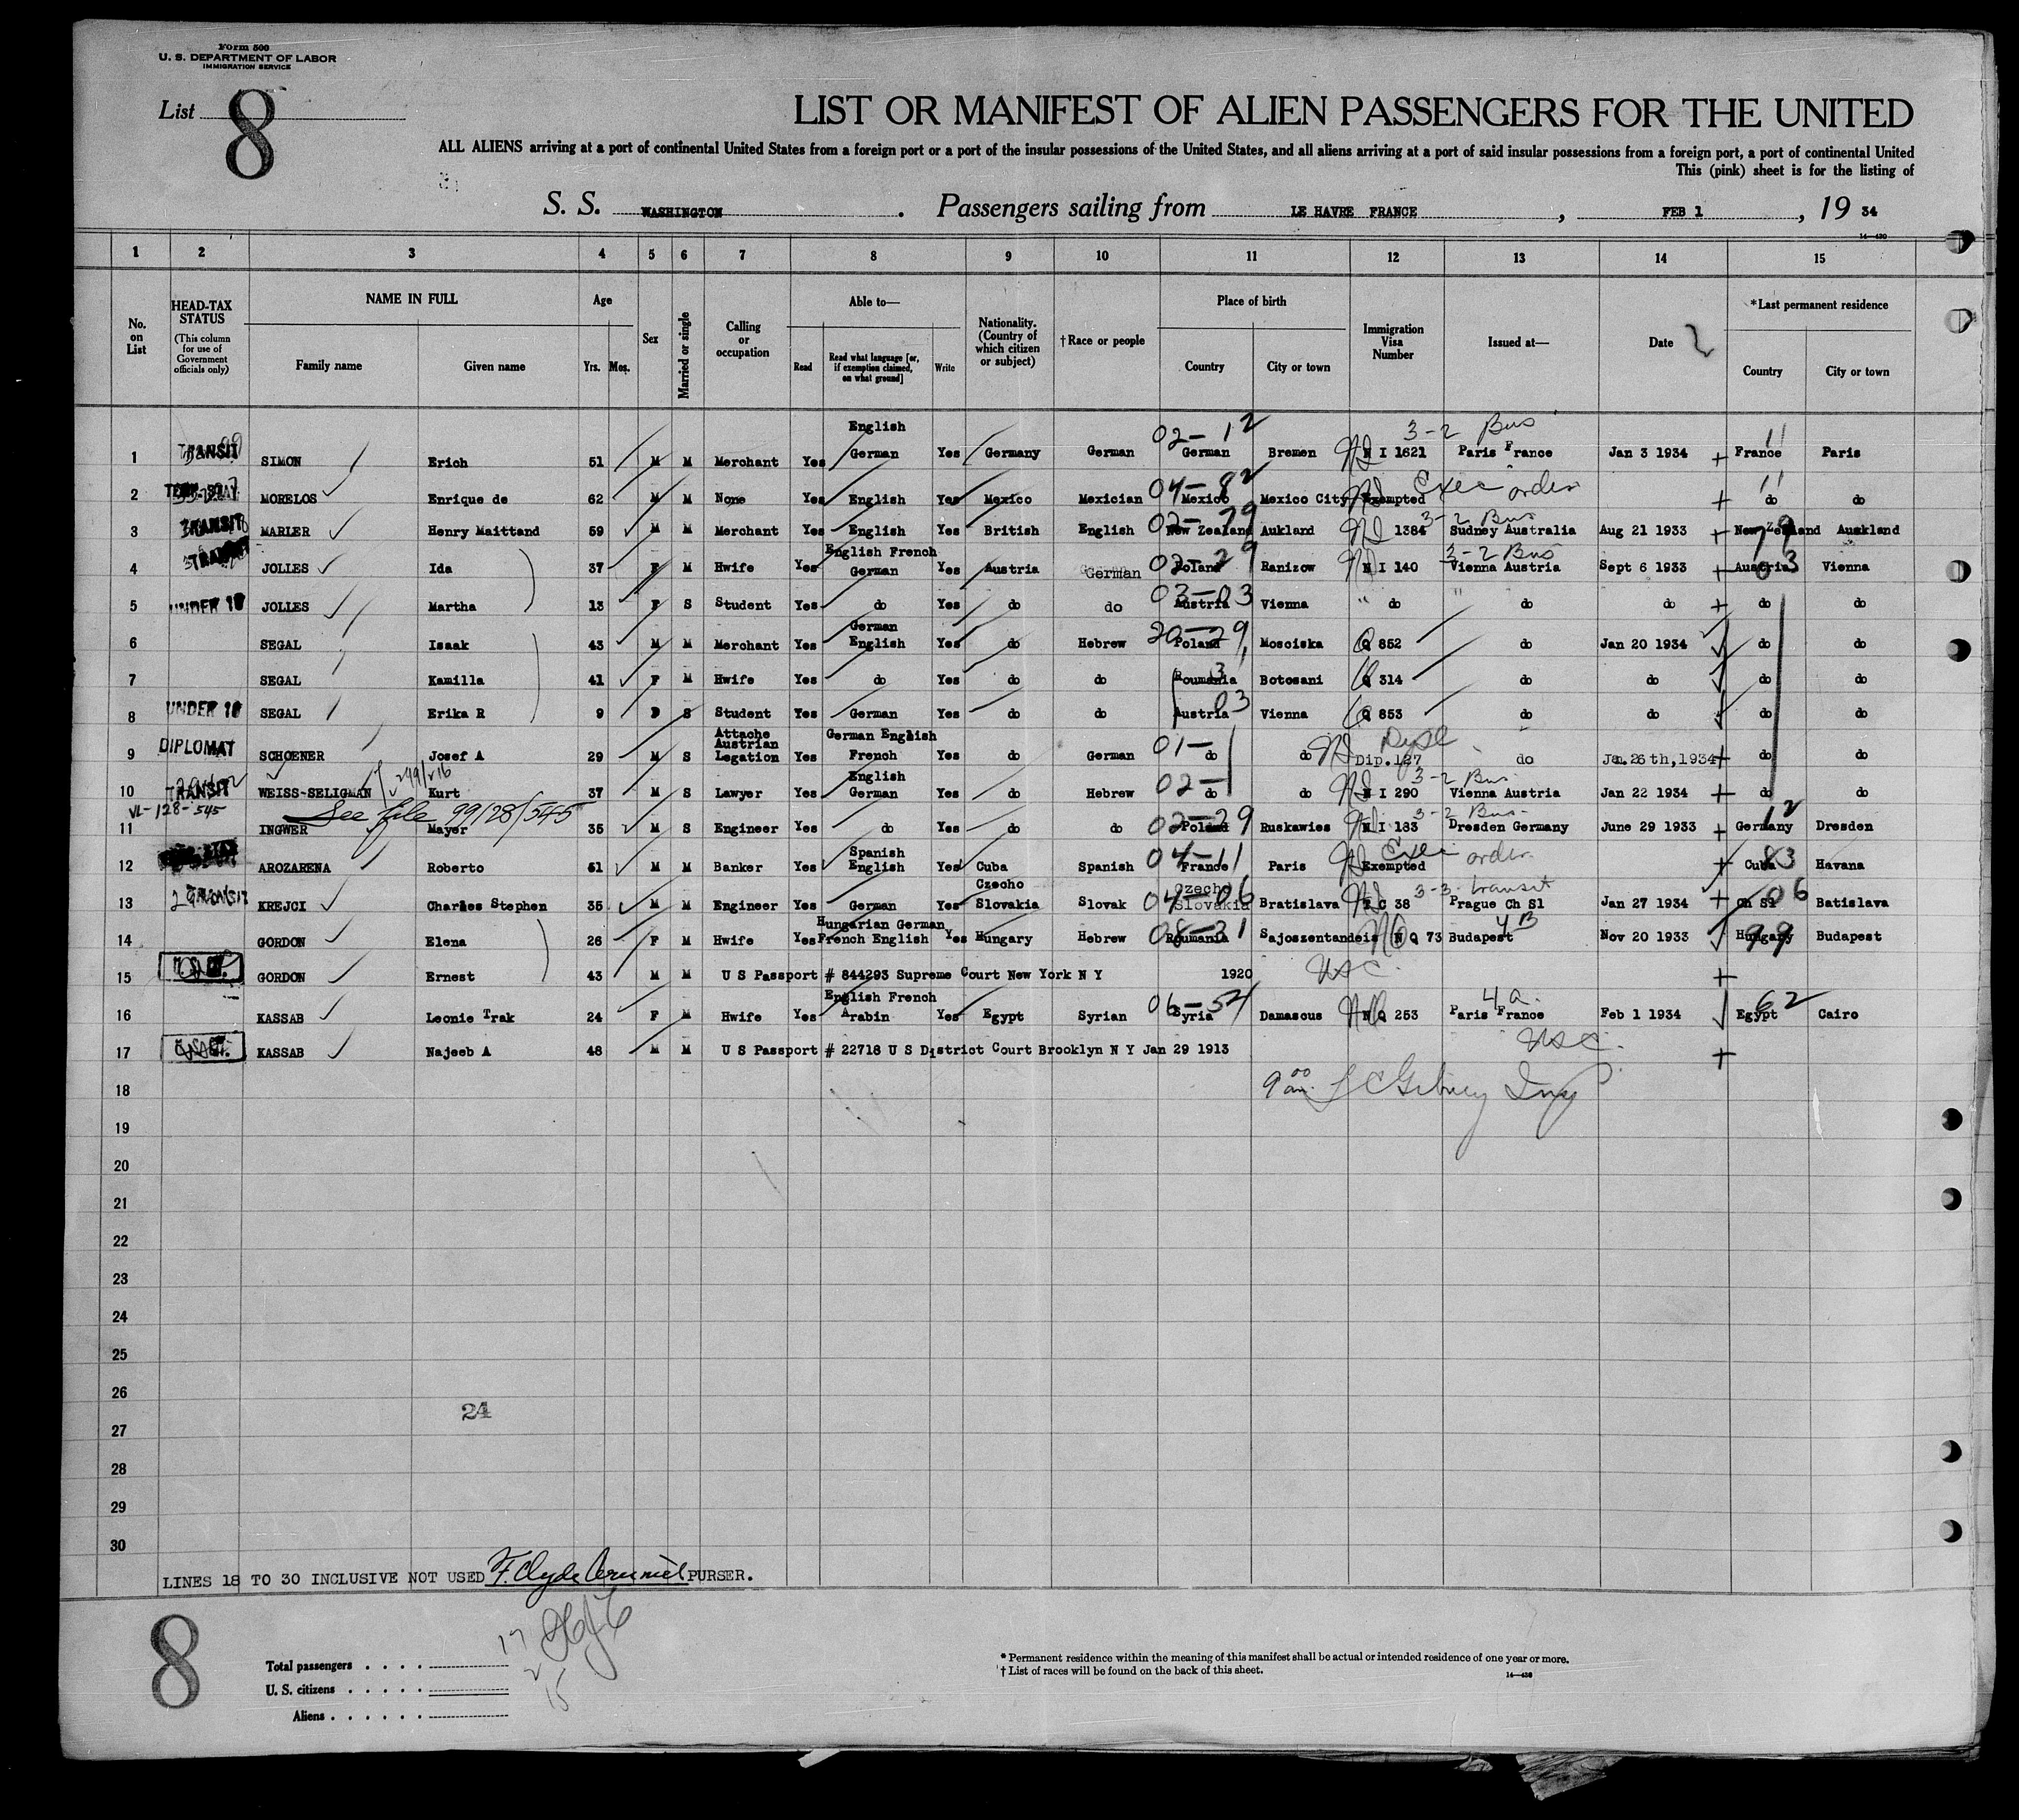 Form 500
U. S. DEPARTMENT OF LABOR
IMMIGRATION SERVICE
List 8
LIST OR MANIFEST OF ALIEN PASSENGERS FOR THE UNITED
ALL ALIENS arriving at a port of continental United States from a foreign port or a port of the insular possessions of the United States, and all aliens arriving at a port of said insular possessions from a foreign port, a port of continental United
This (pink) sheet is for the listing of
S. S. WASHINGTON . Passengers sailing from LE HAVRE FRANCE , FEB 1 , 19 34
14—430
1 2 3 4 5 6 7 8 9 10 11 12 13 14 15
No. on List
HEAD-TAX STATUS (This column for use of Government officials only)
NAME IN FULL Family name Given name
Age Yrs. Mos.
Sex
Married or single
Calling or occupation
Able to— Read Read what language [or, if exemption claimed, on what ground] Write
Nationality. (Country of which citizen or subject)
†Race or people
Place of birth Country City or town
Immigration Visa Number
Issued at—
Date
*Last permanent residence Country City or town
1 TRANSIT SIMON Erich 51 M M Merchant Yes English German Yes Germany German 02-12 German Bremen N I 1621 3-2 Bus Paris France Jan 3 1934 + 11 France Paris
2 MORELOS Enrique de 62 M M None Yes English Yes Mexico Mexician 04-82 Mexico Mexico City Exempted Exec order + 11 do do
3 TRANSIT MARLER Henry Maittand 59 M M Merchant Yes English Yes British English 02-79 New Zealand Aukland 1384 3-2 Bus Sudney Australia Aug 21 1933 + 79 New Zealand Auakland
4 TRANSIT JOLLES Ida 37 F M Hwife Yes English French German Yes Austria German 02-29 Poland Ranizow N I 140 3-2 Bus Vienna Austria Sept 6 1933 + 03 Austria Vienna
5 UNDER 16 JOLLES Martha 13 F S Student Yes do Yes do do 03-03 Austria Vienna " do " do do + do do
6 SEGAL Isaak 43 M M Merchant Yes German English Yes do Hebrew 20-29 Poland Mosciska Q 852 do Jan 20 1934 do do
7 SEGAL Kamilla 41 F M Hwife Yes do Yes do do 31 Roumania Botosani Q 314 do do do do
8 UNDER 16 SEGAL Erika R 9 S Student Yes German Yes do do 03 Austria Vienna Q 853 do do do do
9 DIPLOMAT SCHOENER Josef A 29 M S Attache Austrian Legation Yes German English French Yes do German 01- do do Dip. 127 do Jan. 26th, 1934 + do do
10 TRANSIT WEISS-SELIGMAN Kurt 37 M S Lawyer Yes English German Yes do Hebrew 02- do do N I 290 3-2 Bus Vienna Austria Jan 22 1934 + do do
VL-128-545 See file 99128/545
11 INGWER Mayer 35 M S Engineer Yes do Yes do do 02-29 Poland Ruskawies N I 183 3-2 Bus Dresden Germany June 29 1933 + 12 Germany Dresden
12 AROZARENA Roberto 51 M M Banker Yes Spanish English Yes Cuba Spanish 04-11 France Paris Exempted Exec order + 83 Cuba Havana
13 TRANSIT KREJCI Charles Stephen 35 M M Engineer Yes German Yes Czecho Slovakia Slovak 04-06 Czecho Slovakia Bratislava C 38 3-3 transit Prague Ch Sl Jan 27 1934 + 06 Ch Sl Batislava
14 GORDON Elena 26 F M Hwife Yes Hungarian German French English Yes Hungary Hebrew 08-31 Roumania Sajoszentandeis N Q 73 Budapest 4 B Nov 20 1933 99 Hungary Budapest
15 GORDON Ernest 43 M M U S Passport # 844293 Supreme Court New York N Y 1920 USC. +
16 KASSAB Leonie Trak 24 F M Hwife Yes English French Arabin Yes Egypt Syrian 06-54 Syria Damascus N Q 253 4 a. Paris France Feb 1 1934 62 Egypt Cairo
17 KASSAB Najeeb A 48 M M U S Passport # 22718 U S District Court Brooklyn N Y Jan 29 1913 USC. +
18 9 00 am
19
20
21
22
23
24
25
26
24
27
28
29
30
LINES 18 TO 30 INCLUSIVE NOT USED F. Clyde PURSER.
8
17
2
15
Total passengers
U. S. citizens
Aliens
* Permanent residence within the meaning of this manifest shall be actual or intended residence of one year or more.
† List of races will be found on the back of this sheet.